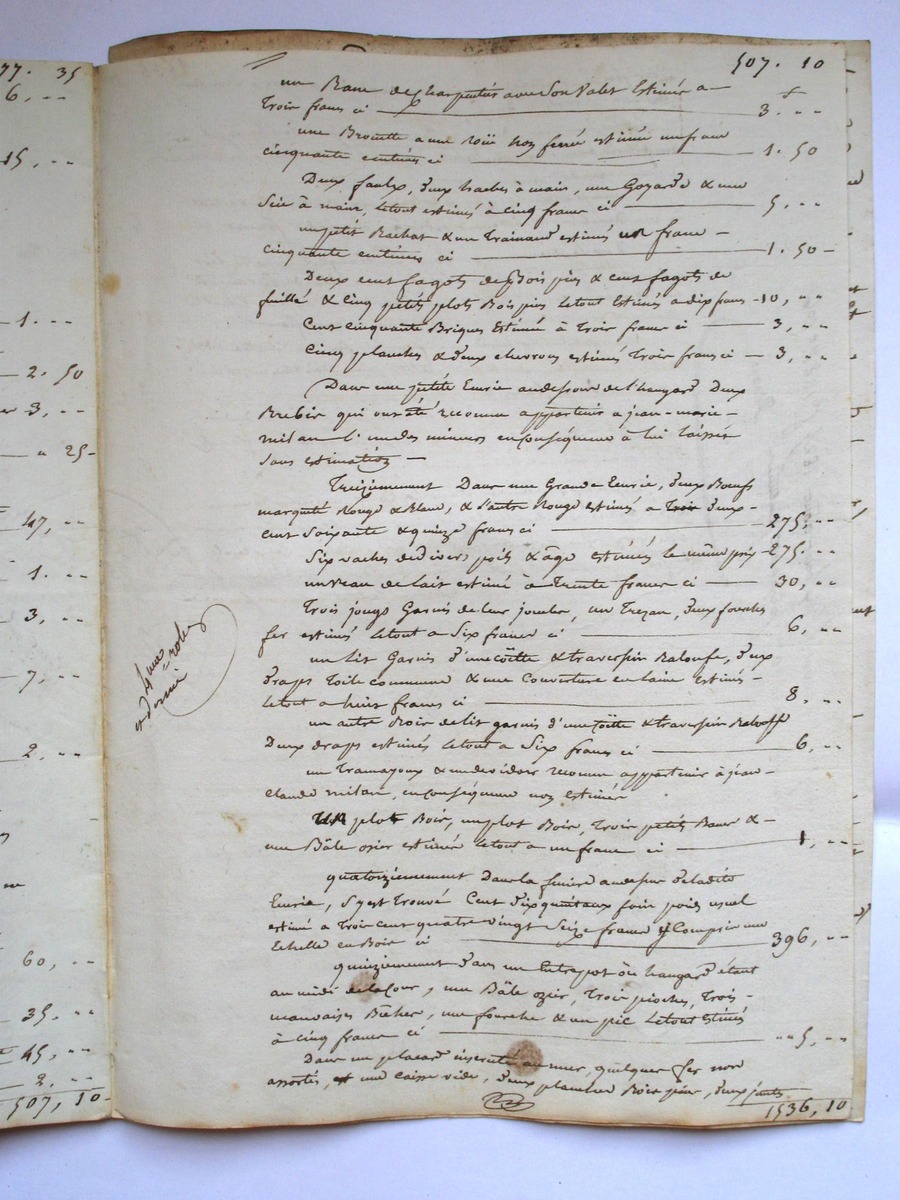 77. 35
6, --
15, --
- 1. --
- 2. 50
3, --
" 25-
47, --
1. --
3, --
7, --
2. --
60, --
35. --
45, --
2. --
507, 10-
507. 10
un Banc de Charpentier avec Son Valet Estimé a
Trois francs ci 3. --
une Brouette a une roüe non ferrée estimée un franc
cinquante centimes ci 1. 50
Deux faulx, deux haches à main, une Goyarde & une
Scie à main, le tout estimés à Cinq francs ci 5, --
un petit Rachat & un Trainard estimés un franc -
cinquante centimes ci 1. 50-
Deux cent fagots de Bois pin & cent fagots de
fuille & Cinq petits plots Bois pin le tout Estimés a dix francs -10, --
Cent Cinquante Briques Estimé à Trois francs ci 3, --
Cinq planches & deux chevrons estimés Trois francs ci - 3, --
Dans une petite Ecurie au dessous de l'hangard Deux
Brebis qui ont été reconnu appartenir a jean-marie-
milan l'un des mineurs en conséquence à lui laissés
Sans estimation -
Treizièmement Dans une Grande Ecurie, deux Boeufs
marqués Rouge & Blanc, & l'autre Rouge estimés a Trois deux-
cent Soixante & quinze francs ci 275, --
Six vaches de divers poils & âge estimés le même prix -275. --
un veau de lait estimé à Trente francs ci 30, --
Trois jougs Garnis de leur joucles, un Trezan, deux fourches
fer estimés le tout a Six francs ci 6, --
un lit Garnis d'une Coëtte & traversin Baloufe, deux
draps toile commune & une Couverture en laine estimés -
le tout a huit francs ci 8, --
un autre Bois de lit garnis d'une Coëtte & traversin Balouff
Deux draps estimés le tout a Six francs ci 6, --
un Tramayoux & un devidoir reconnu appartenir à jean-
claude milan, en conséquence non Estimés
Un plot Bois, un plot Bois, Trois petits Bancs &
une Bâle osier estimés le tout a un franc ci 1, --
quatorzièmement Dans la feniere au dessus de la dite
Ecurie, S'y est Trouvé Cent dix quintaux foin poids usuel
estimé a Trois Cent quatre vingt Seize francs y Compris une
Echelle en Bois ci 396, --
quinzièmement dans un Entrepot ou hangard étant
au midi de la Cour, une Bâle ozier, Trois pioches, Trois-
mauvaises Bêches, une fourche & un pic le tout Estimés
à cinq francs ci 5, --
Dans un placard incrusté au mur, quelques fer non
assortis, et une caisse vide, deux planches Bois pin, deux jantes
1536, 10